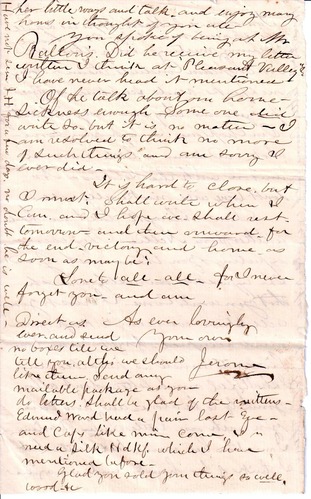 her little ways and talk, and enjoy many
hours in thought of you and
You spoke of being at Mr
Bullons. Did he receive my letter
written I think at Pleasant Valley
I have never heard it mentioned
Of the talk about my home-
sickness enough. Some one did
write so - but it is no matter - I
am resolved to think no more
of such things and am sorry I
ever did -
It is hard to close, but
I must. Shall write when I
can, and I hope we shall rest
tomorrow and then onward for
the end - victory and home as
soon as may be.
Love to all - all - for I never
forget you - and am
As ever lovingly
Your own
Jerome
Direct as
ever and send
no boxes till we
tell you, altho we should
like them. Send any
mailable package as you
do letters. Shall be glad of the mittens -
Edmund Ward had a pair last Eve -
and Caps like mine come. I
need a Silk Hdkf. which I have
mentioned before.
Glad you sold your things so well.
wood &c
Have not seen
for a few days, no doubt he is well -